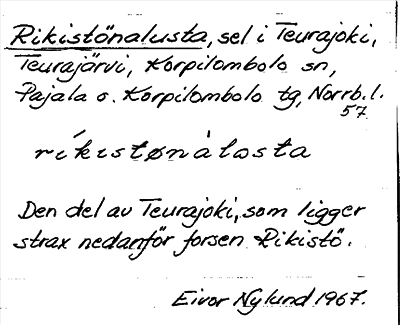 Rikistönalusta, sel i Teurajoki,
Teurajärvi, Korpilombolo sn,
Pajala o. Korpilombolo tg, Norrb. l.
57
ríkistønàlosta
Den del av Teurajoki, som ligger
strax nedanför forsen Rikistö.
Eivor Nylund 1967.